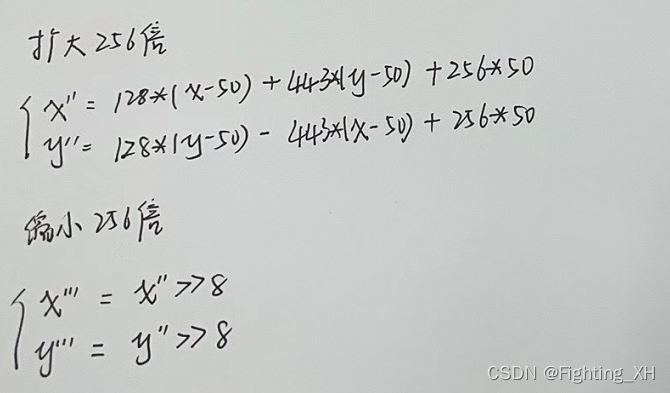 扩大256倍
x'' = 128*(x-50) + 443*(y-50) + 256*50
y'' = 128*(y-50) - 443*(x-50) + 256*50
缩小256倍
x''' = x''>>8
y''' = y''>>8
CSDN @Fighting_XH